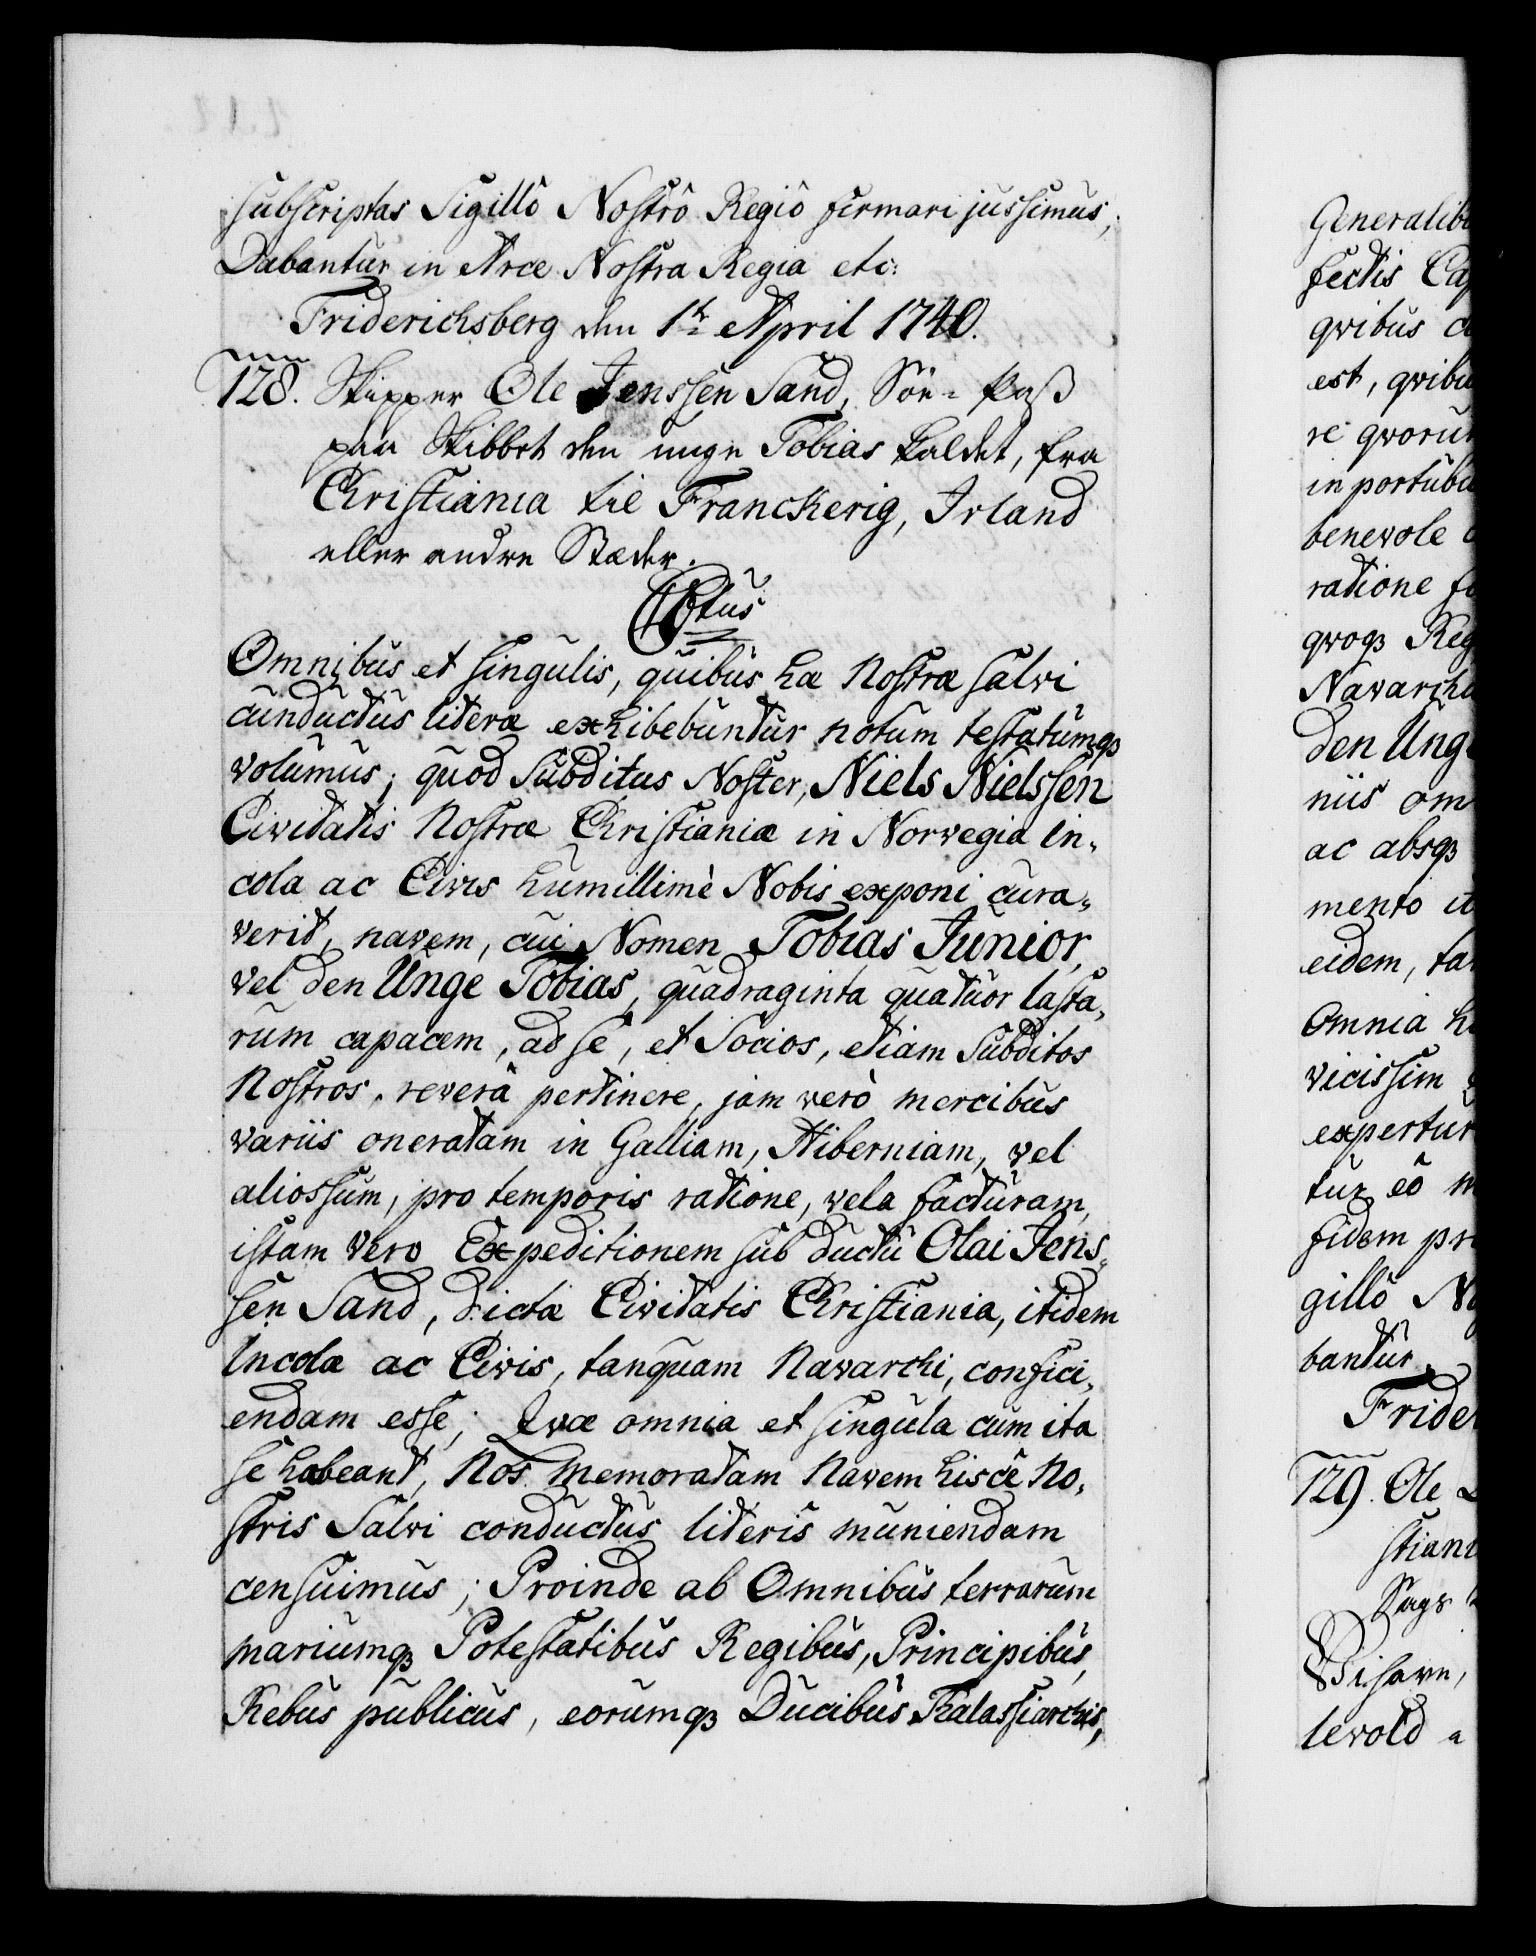 subscriptas Sigillô Nostrô Regiô firmari jussimus,
Dabantur in Arce Nostra Regia etc:
Friderichsberg den 1te April 1740.
128. Skipper Ole Jenssen Sand, Söe-Paß
paa Skibbet den unge Tobias kaldet, fra
Christiania til Franckerig, Irland
eller andre Stæder.
Ctus
Omnibus et singulis, quibus hæ Nostræ salvi
cunductus literæ exhibebuntur notum testatumqȝ
volumus; quod Subditus Noster, Niels Nielssen
Civitatis Nostræ Christianiæ in Norvegia In-
cola ac Civis humillimè Nobis exponi cura-
verit, navem, cui Nomen Tobias Junior,
vel den Unge Tobias, quadraginta quatuor lasta-
rum capacem, ad se, et Socios, etiam Subditos
Nostros, reverâ pertinere, jam verò mercibus
variis oneratam in Galliam, Hiberniam, vel
aliossum, pro temporis ratione, vela facturam,
istam vero Expeditionem sub ductu Olai Jens-
sen Sand, dictæ Civitatis Christiania, itidem
Incolæ ac Civis, tanquam Navarchi, confici-
endam esse; Qvæ omnia et singula cum ita
se habeant, Nos memoratam Navem hisce No-
stris Salvi conductus literis muniendam
censuimus; Proinde ab Omnibus terrarum
mariumqȝ Potestatibus Regibus, Principibus,
Rebus publicus, eorumqȝ Ducibus Thalassiarchis,
Generalib
fectis Cap
qvibus
est, qvibu
re qvoru
in portubu
benevole
ratione
qvoqȝ Reg
Navarch
den Unge
niis om
ac absqȝ
mento it
eidem, ta
Omnia h
vicissim
expertur
tur, eô
fidem pr
gillô No
bantur
Frider
129. Ole
stian
Sags
levold